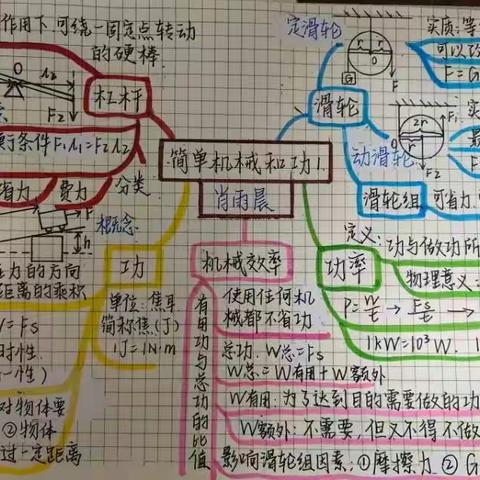 作用下,可绕一固定点转动
的硬棒.
O
F2
杠杆
衡条件F1L1=F2L2
省力
费力
分类
F
h
定滑轮
r
r
G
F
实质:等
可以改
F=G
滑轮
动滑轮
2r
O
F2
滑轮组
可省力
简单机械和功1.
肖雨晨
概念:
功
力的方向
距离的乘积
W=Fs
时性.
一性)
对物体要
②物体
过一定距离
单位:焦耳
简称焦(J)
1J=1N·m
机械效率
有用功与总功的比值
使用任何机
械都不省功
总功:W总=Fs
W总=W有用+W额外
W有用:为了达到目的需要做的功
W额外:不需要,但又不得不做
影响滑轮组因素:①摩擦力.②G
功率
定义:功与做功所
物理意义:
P=W/t→Fs/t→
1kW=10³W.